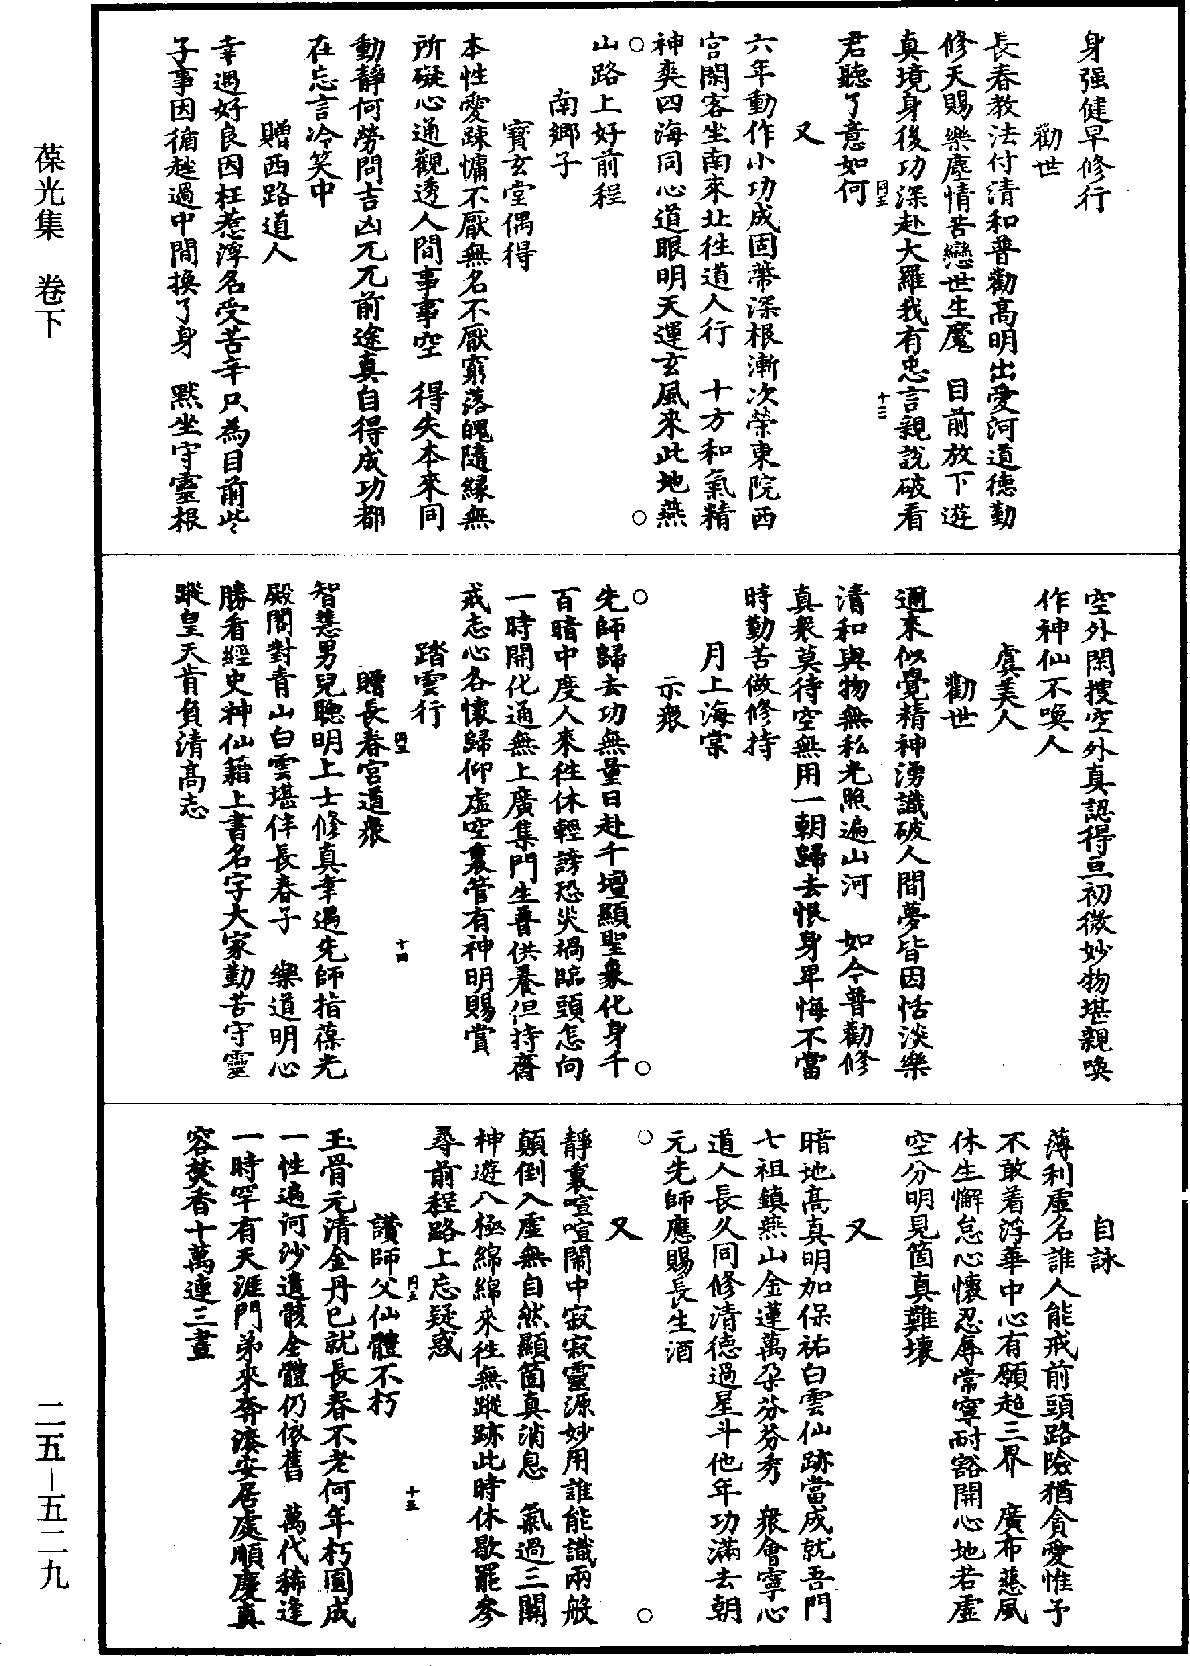 身强健早修行
勸世
長春教法付清和普勸高明出愛河道德勤
修天賜樂塵情苦戀世生魔　目前放下遊
真境身後功深赴大羅我有忠言親說破看
君聽了意如何
又
六年動作小功成固蒂深根漸次榮東院西
宮閑客坐南來北往道人行　十方和氣精
神爽四海同心道眼明天運玄風來此地燕
山路上好前程
南鄉子
寶玄堂偶得
本性愛踈慵不厭無名不厭窮落魄隨緣無
所礙心通觀透人間事事空　得失本來同
動靜何勞問吉凶兀兀前途真自得成功都
在忘言冷笑中
贈西路道人
幸遇好良因枉惹浮名受苦辛只為目前些
子事因循越過中間換了身　默坐守靈根
空外閑搜空外真認得亘初微妙物堪親喚
作神仙不喚人
虞美人
勸世
邇來似覺精神湧識破人間夢皆因恬淡樂
清和與物無私光照遍山河　如今普勸修
真衆莫待空無用一朝歸去恨身卑悔不當
時勤苦做修持
月上海棠
示衆
先師歸去功無量日赴千壇顯聖象化身千
百暗中度人來往休輕謗恐災禍臨頭怎向
一時開化通無上廣集門生普供養但持齋
戒志心各懷歸仰虛空裏管有神明賜賞
踏雲行
贈長春宮道衆
智慧男兒聰明上士修真幸遇先師指葆光
殿閣對青山白雲堪伴長春子　樂道明心
勝看經史神仙籍上書名字大家勤苦守靈
蹤皇天肯負清高志
自詠
薄利虛名誰人能戒前頭路險猶貪愛惟予
不敢着浮華中心有願超三界　廣布慈風
休生懈怠心懷忍辱常寧耐豁開心地若虛
空分明見箇真難壞
又
暗地高真明加保祐白雲仙跡當成就吾門
七祖鎮燕山金蓮萬朵芬芬秀　衆會寧心
道人長久同修清德過星斗他年功滿去朝
元先師應賜長生酒
又
靜裏喧喧鬧中寂寂靈源妙用誰能識兩般
顛倒入虛無自然顯箇真消息　氣過三關
神遊八極綿綿來往無蹤跡此時休歇罷參
尋前程路上忘疑惑
讚師父仙體不朽
玉骨元清金丹已就長春不老何年朽圓成
一性遍河沙遺骸全體仍依舊　萬代稀逢
一時罕有天涯門弟來奔湊安居處順慶真
容焚香十萬連三晝
十三
十四
十五
葆光集　卷下
二五—五二九